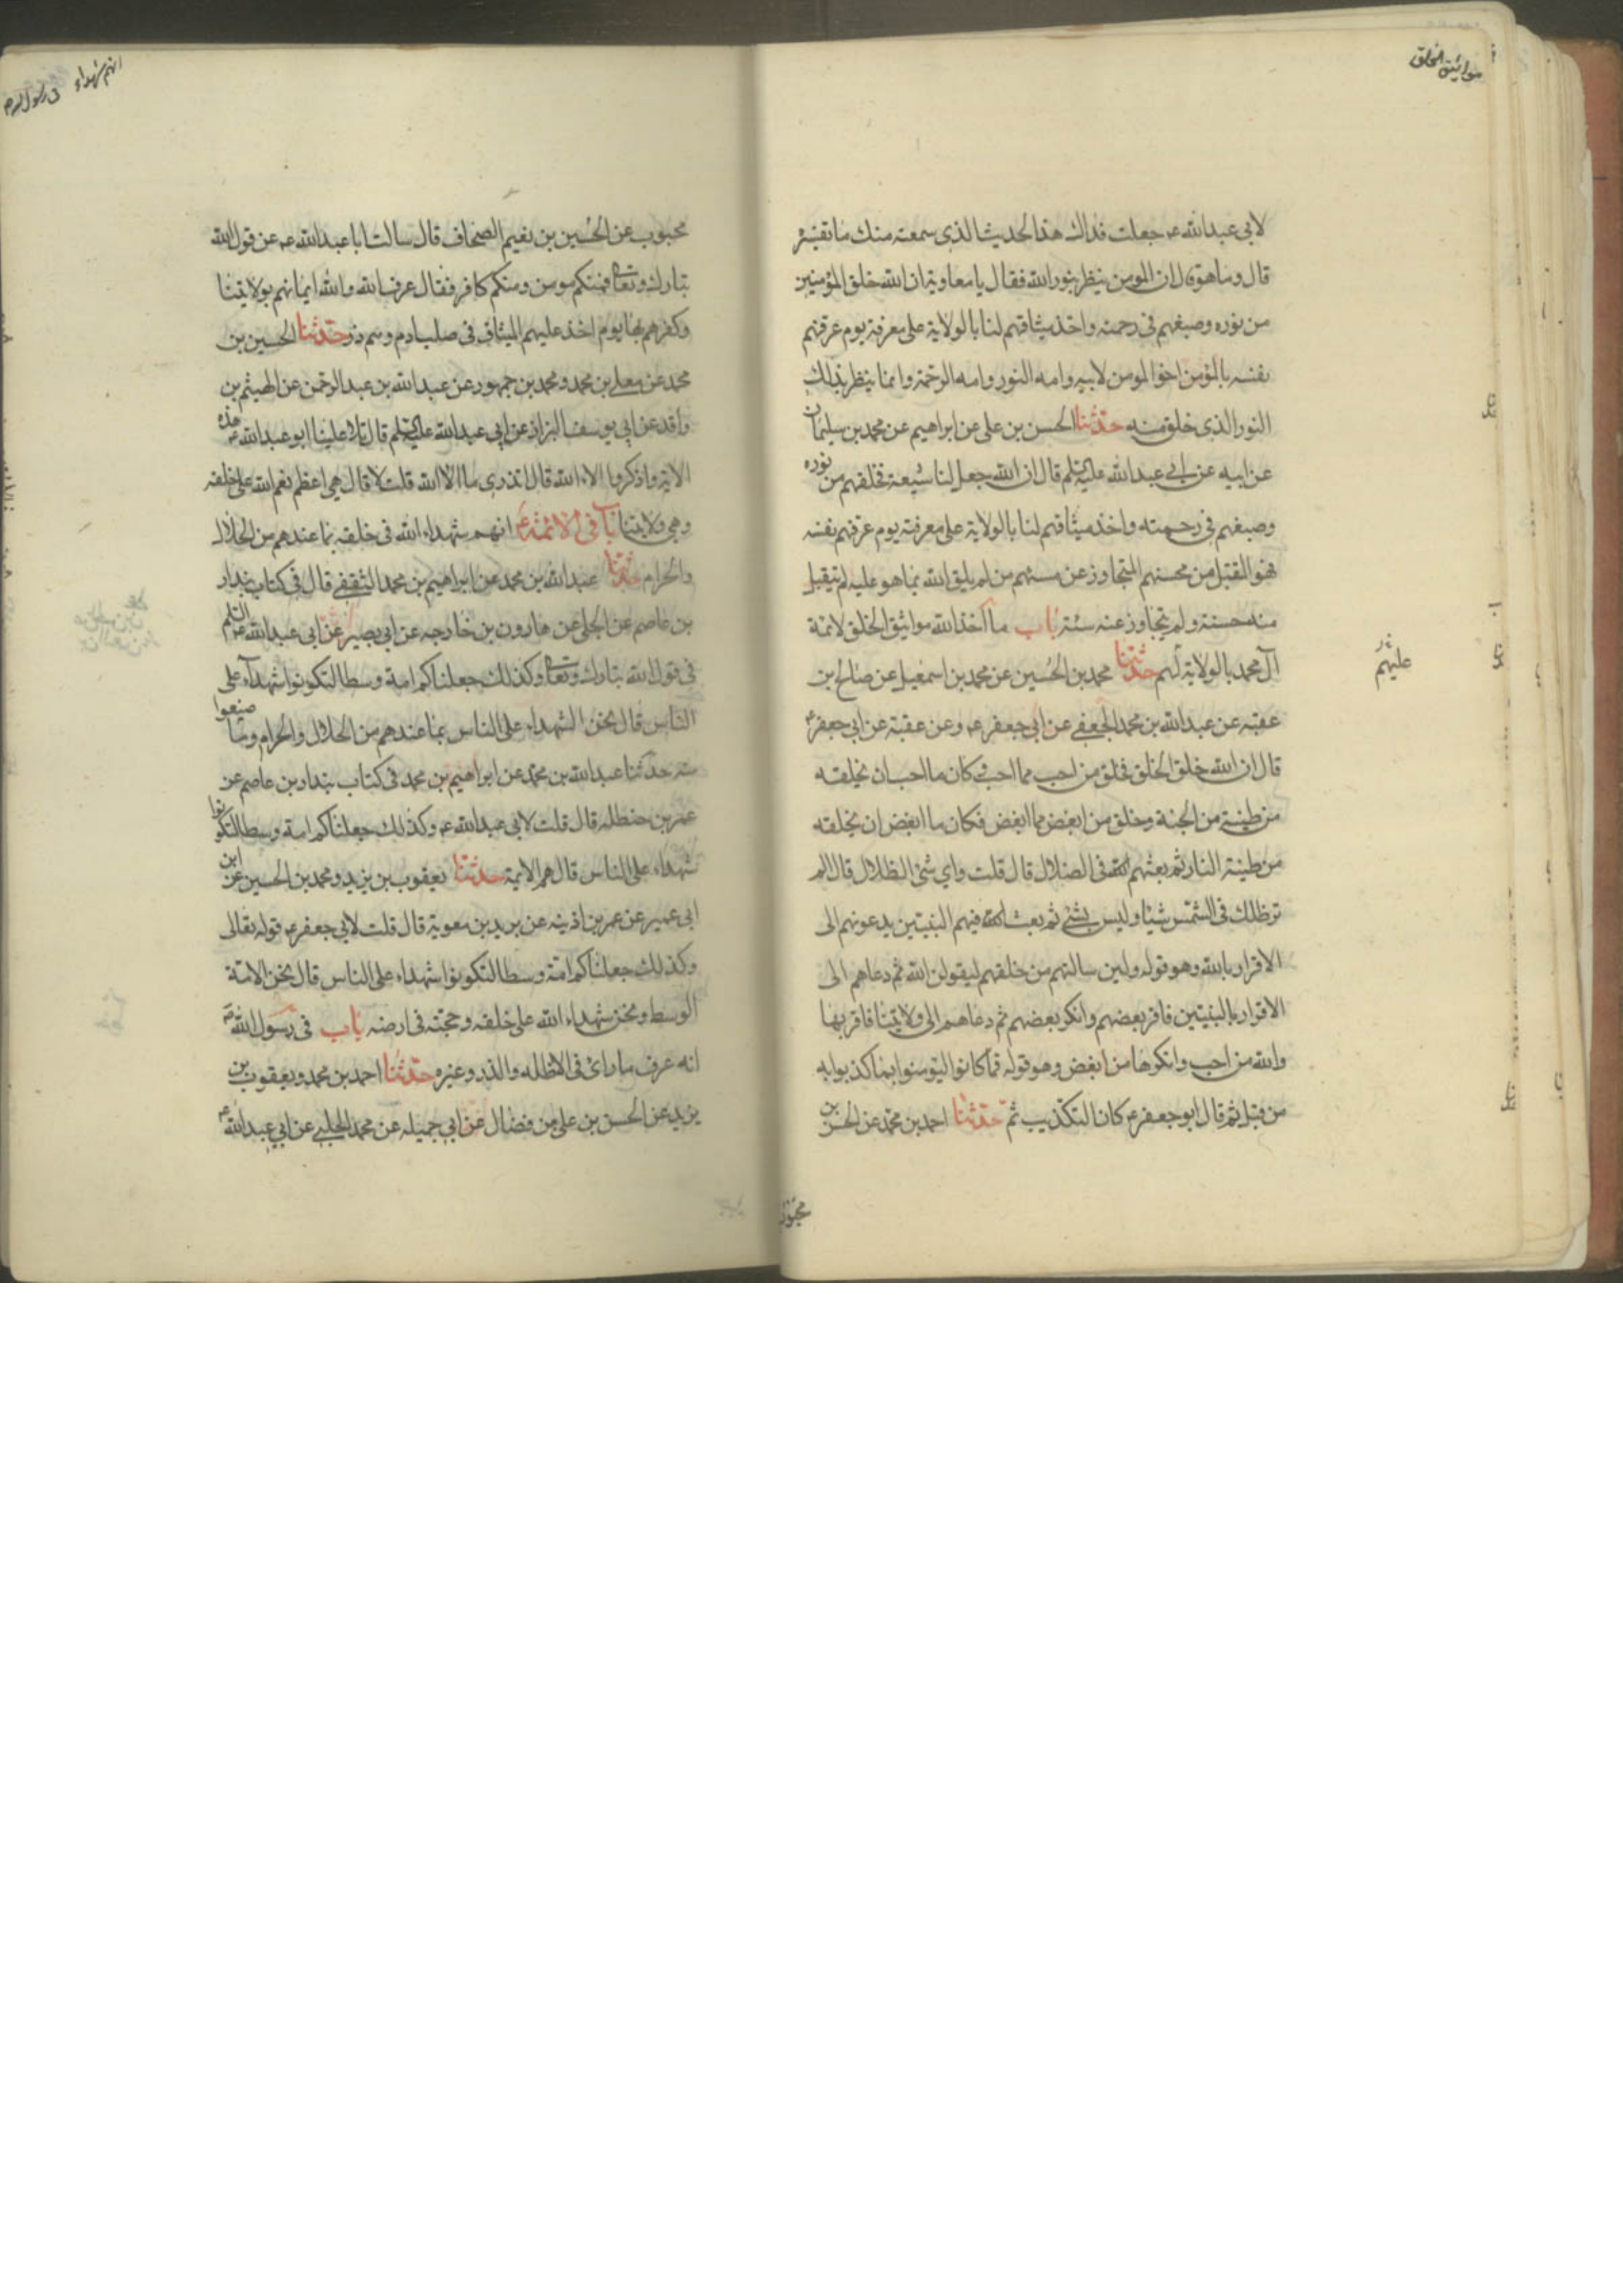 مواثيق الخلق
لابي عبد الله عه جعلت فداك هذا الحديث الذي سمعته منك ما تفسيره
قال وما هو قال ان المومن ينظر بنور الله فقال يا معاوية ان الله خلق المؤمنين
من نوره وصبغهم في رحمته واخذ ميثاقهم لنا بالولاية على معرفته يوم عرفهم
نفسه بالمؤمن اخو المومن لابيه وامه النور وامه الرحمة وانما ينظر بذلك
النور الذي خلق منه حدثنا الحسن بن علي عن ابراهيم عن محمد بن سليمان
عن ابيه عن ابي عبد الله عليه السلم قال ان الله جعل لنا شيعة فخلقهم من نوره
وصبغهم في رحمته واخذ ميثاقهم لنا بالولاية على معرفته يوم عرفهم نفسه
فهو المتقبل من محسنهم المتجاوز عن مسيئهم من لم يلق الله بما هو عليه لم يتقبل
منه حسنة ولم يتجاوز عنه سيئة باب ما اخذ الله مواثيق الخلق لائمة
آل محمد بالولاية لهم حدثنا محمد بن الحسين عن محمد بن اسمعيل عن صالح بن
عليهم
عقبه عن عبد الله بن محمد الجعفي عن ابي جعفر عه وعن عقبة عن ابي جعفر ع
قال ان الله خلق الخلق فخلق من احب مما احب وكان ما احب ان يخلقه
من طينة من الجنة وخلق من ابغض مما ابغض فكان ما ابغض ان يخلقه
من طينة النار ثم بعثهم الله في الضلال قال قلت واي شئ الظلال قال الم
تر ظلك في الشمس شيئا وليس بشئ ثم بعث الله فيهم النبيين يدعونهم الى
الاقرار بالله وهو قوله ولين سالتهم من خلقهم ليقولن الله ثم دعاهم الى
الاقرار بالنبيين فاقر بعضهم وانكر بعضهم ثم دعاهم الى ولايتنا فاقر بها
والله من احب وانكرها من ابغض وهو قوله فما كانوا ليؤمنوا بما كذبوا به
من قبل ثم قال ابو جعفر عه كان التكذيب ثم حدثنا احمد بن محمد عن الحسن بن
محبوب
انهم شهداء
في رسول الله ص
محبوب عن الحسين بن نعيم الصحاف قال سالت ابا عبد الله عه عن قول الله
تبارك وتعالى فمنكم مومن ومنكم كافر فقال عرف الله والله ايمانهم بولايتنا
وكفرهم بها يوم اخذ عليهم الميثاق في صلب ادم وهم ذر حدثنا الحسين بن
محمد عن معلى بن محمد ومحمد بن جمهور عن عبد الله بن عبد الرحمن عن الهيثم بن
واقد عن ابي يوسف البزاز عن ابي عبد الله عليه السلم قال تلا علينا ابو عبد الله عه هذه
الاية واذكروا الاء الله قال اتدري ما الاء الله قلت لا قال هي اعظم نعم الله على خلقه
وهي ولايتنا باب في الائمة ع انهم شهداء الله في خلقه بما عندهم من الحلال
والحرام حدثنا عبد الله بن محمد عن ابراهيم بن محمد الثقفي قال في كتاب بندار
بن عاصم عن الحلبي عن هارون بن خارجه عن ابي بصير عن ابي عبد الله عليه السلم
في قول الله تبارك وتعالى وكذلك جعلناكم امة وسطا لتكونوا شهداء على
الناس قال نحن الشهداء على الناس بما عندهم من الحلال والحرام وبما صنعوا
منه حدثنا عبد الله بن محمد عن ابراهيم بن محمد في كتاب بندار بن عاصم عن
عمر بن حنظله قال قلت لابي عبد الله عه وكذلك جعلناكم امة وسطا لتكونوا
شهداء على الناس قال هم الايمة حدثنا يعقوب بن يزيد ومحمد بن الحسين عن ابن
ابي عمير عن عمر بن اذينه عن بريد بن معوية قال قلت لابي جعفر عه قوله تعالى
وكذلك جعلناكم امة وسطا لتكونوا شهداء على الناس قال نحن الامة
الوسط ونحن شهداء الله على خلقه وحجته في ارضه باب في رسول الله ص
انه عرف ما راى في الاظله والذر وغيره حدثنا احمد بن محمد ويعقوب بن
يزيد عن الحسن بن علي بن فضال عن ابي جميله عن محمد الحلبي عن ابي عبد الله ع